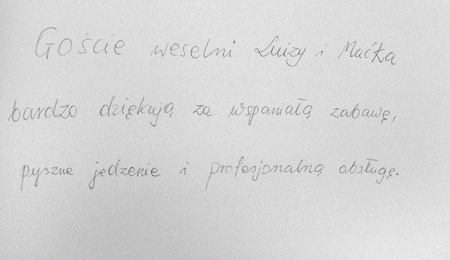 Goście weselni Luizy i Maćka
bardzo dziękują za wspaniałą zabawę,
pyszne jedzenie i profesjonalną obsługę.